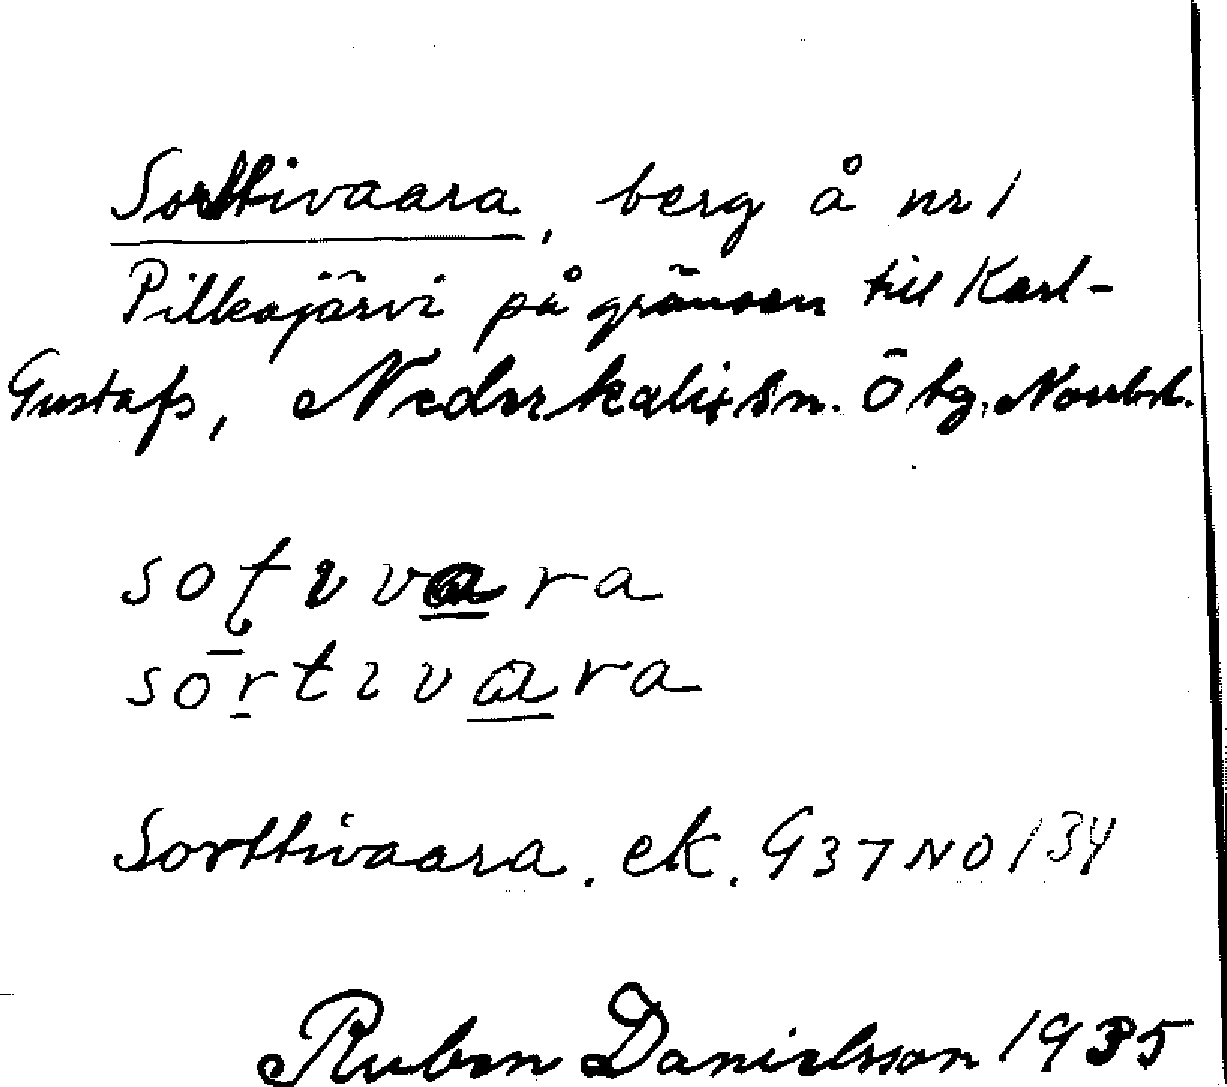 Sorttivaara, berg å nr 1
Pilkajärvi på gränsen till Karl-
Gustafs, Nederkalix sn. Ö bg. Norrb. l.
sotivara
sortivara
Sorttivaara. ek. G37NO134
Ruben Danielsson 1935